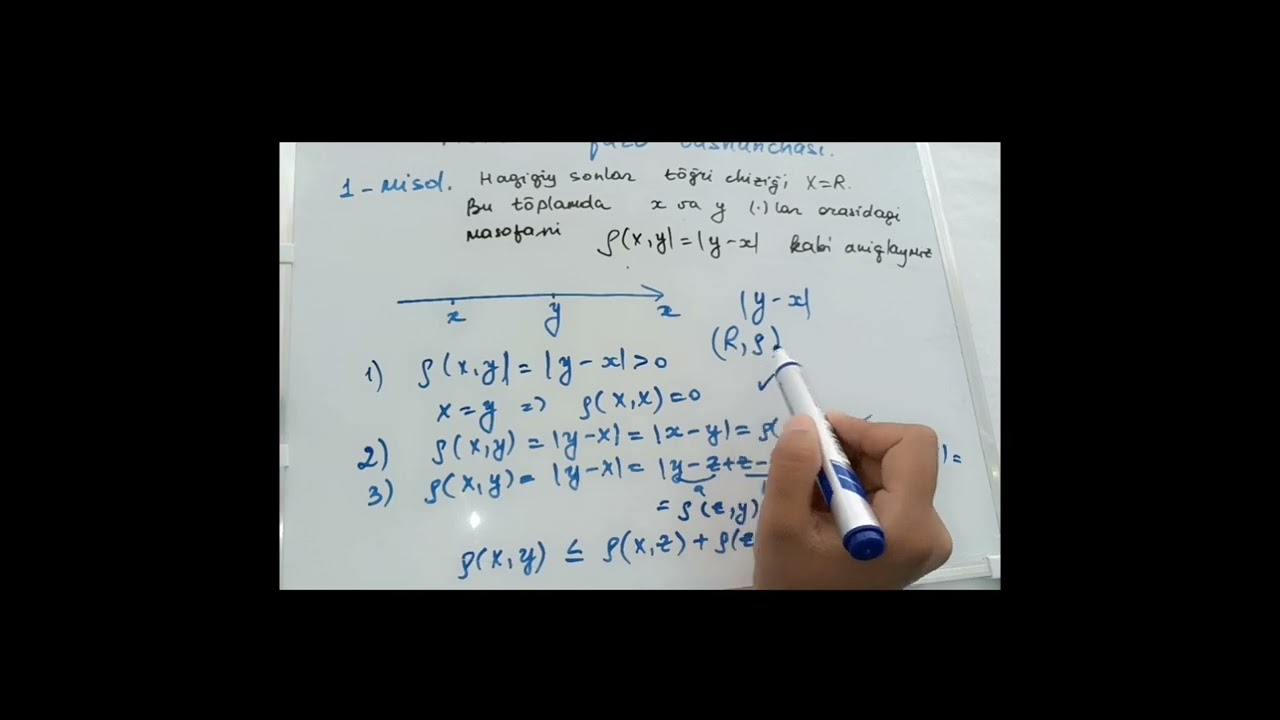 tushunchasi.
1-misol. Haqiqiy sonlar tōğri chiziği, X=R.
Bu tōplamda x va y (·)lar orasidagi
masofani ρ(x,y)=|y-x| kabi aniqlaymiz
x y x
|y-x|
(R,ρ)
1) ρ(x,y)=|y-x|>0
x=y => ρ(x,x)=0
2) ρ(x,y)=|y-x|=|x-y|=ρ(
3) ρ(x,y)=|y-x|=|y-z+z-
a
=ρ(z,y)
ρ(x,y) ≤ ρ(x,z)+ρ(z